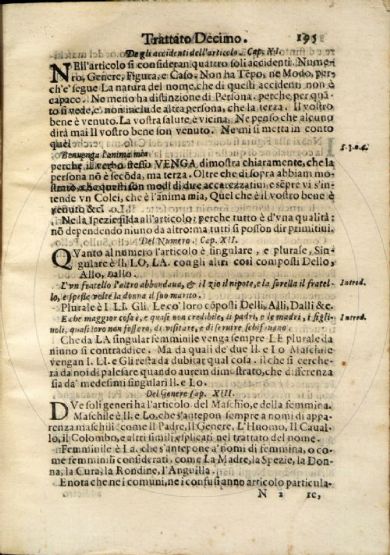 Trattato Decimo. 195
De gli accidenti dell'articolo. Cap. XI.
NEll'articolo si consideran quattro soli accidenti. Nume-
ro, Genere, Figura, e Caso. Non ha Tẽpo, ne Modo, per-
ch'e' segue La natura del nome, che di questi accidenti non è
capace. Ne meno ha distinzione di Persona, perche, per quã-
to si vede, e' non include altra persona, che la terza. Il vostro
bene è venuto. La vostra salute è vicina. Ne penso che alcuno
dirà mai Il vostro bene son venuto. Ne mi si metta in conto
quel
Benuenga l'anima mia
perche il verbo stesso VENGA dimostra chiaramente, che la
persona nõ è secõda, ma terza. Oltre che di sopra abbiam mo-
strato che questi son modi di dire
tende vn Colei, che è l'anima mia, Quel che è il vostro bene è
venuto &c.
Nella Spezie l'articolo: perche tutto è d'vna qualità:
nõ dependendo niuno da altro: ma tutti si posson dir primitiui.
Del Numero. Cap. XII.
QVanto al numero l'articolo è singulare, e plurale, Sin-
gulare è Il, LO, LA con gli altri così composti Dello,
Allo, nallo.
L'vn fratello l'altro abbandona, & il zio il nipote, e la sorella il fratel-
lo, e spesse volte la donna il suo marito. Introd.
Plurale è I LE Gli. Le co' loro cõposti Delli, Alli, Dalli &c.
E che maggior cosa è, e quasi non credibile, i padri, e le madri, i figli- Introd.
uoli, quasi loro non fossero, di visitare, e di seruire schifauano.
Che da LA singular femminile venga sempre LE plurale da
niuno si contraddice. Ma da quali de' due Il e Lo Maschile
vengan I. LI. e Gli resta da dubitar qual cosa. il che si cerche-
rà da noi di palesare quando aurem dimostrato, che differenza
sia da' medesimi singulari Il. e Lo.
Del Genere Cap. XIII.
DVe soli generi ha l'articolo del Maschio, e della femmina.
Maschile è Il. e Lo, che s'antepon sempre a nomi di appa-
renza maschili: come il Padre, Il Genere, L'Huomo, Il Caual-
lo, il Colombo, e altri simili esplicati nel trattato del nome.
Femminile è La, che s'antepone a' nomi di femmina, o co-
me femminili considerati, come La Madre, la Spezie, la Don-
na, la Cura, la Rondine, l'Anguilla.
E nota che ne i comuni, ne i confusi anno articolo particula-
N 2 re,